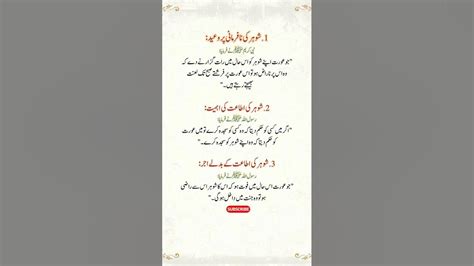 1. شوہر کی نافرمانی پر وعید:
نبی کریم ﷺ نے فرمایا:
"جو عورت اپنے شوہر کو اس حال میں رات گزارنے دے کہ
وہ اس پر ناراض ہو تو اس عورت پر فرشتے صبح تک لعنت
بھیجتے رہتے ہیں۔"
2. شوہر کی اطاعت کی اہمیت:
رسول اللہ ﷺ نے فرمایا:
"اگر میں کسی کو حکم دیتا کہ وہ کسی کو سجدہ کرے تو میں عورت
کو حکم دیتا کہ وہ اپنے شوہر کو سجدہ کرے۔"
3. شوہر کی اطاعت کے بدلے اجر:
رسول اللہ ﷺ نے فرمایا:
"جو عورت اس حال میں فوت ہو کہ اس کا شوہر اس سے راضی
ہو تو وہ جنت میں داخل ہوگی۔"
SUBSCRIBE